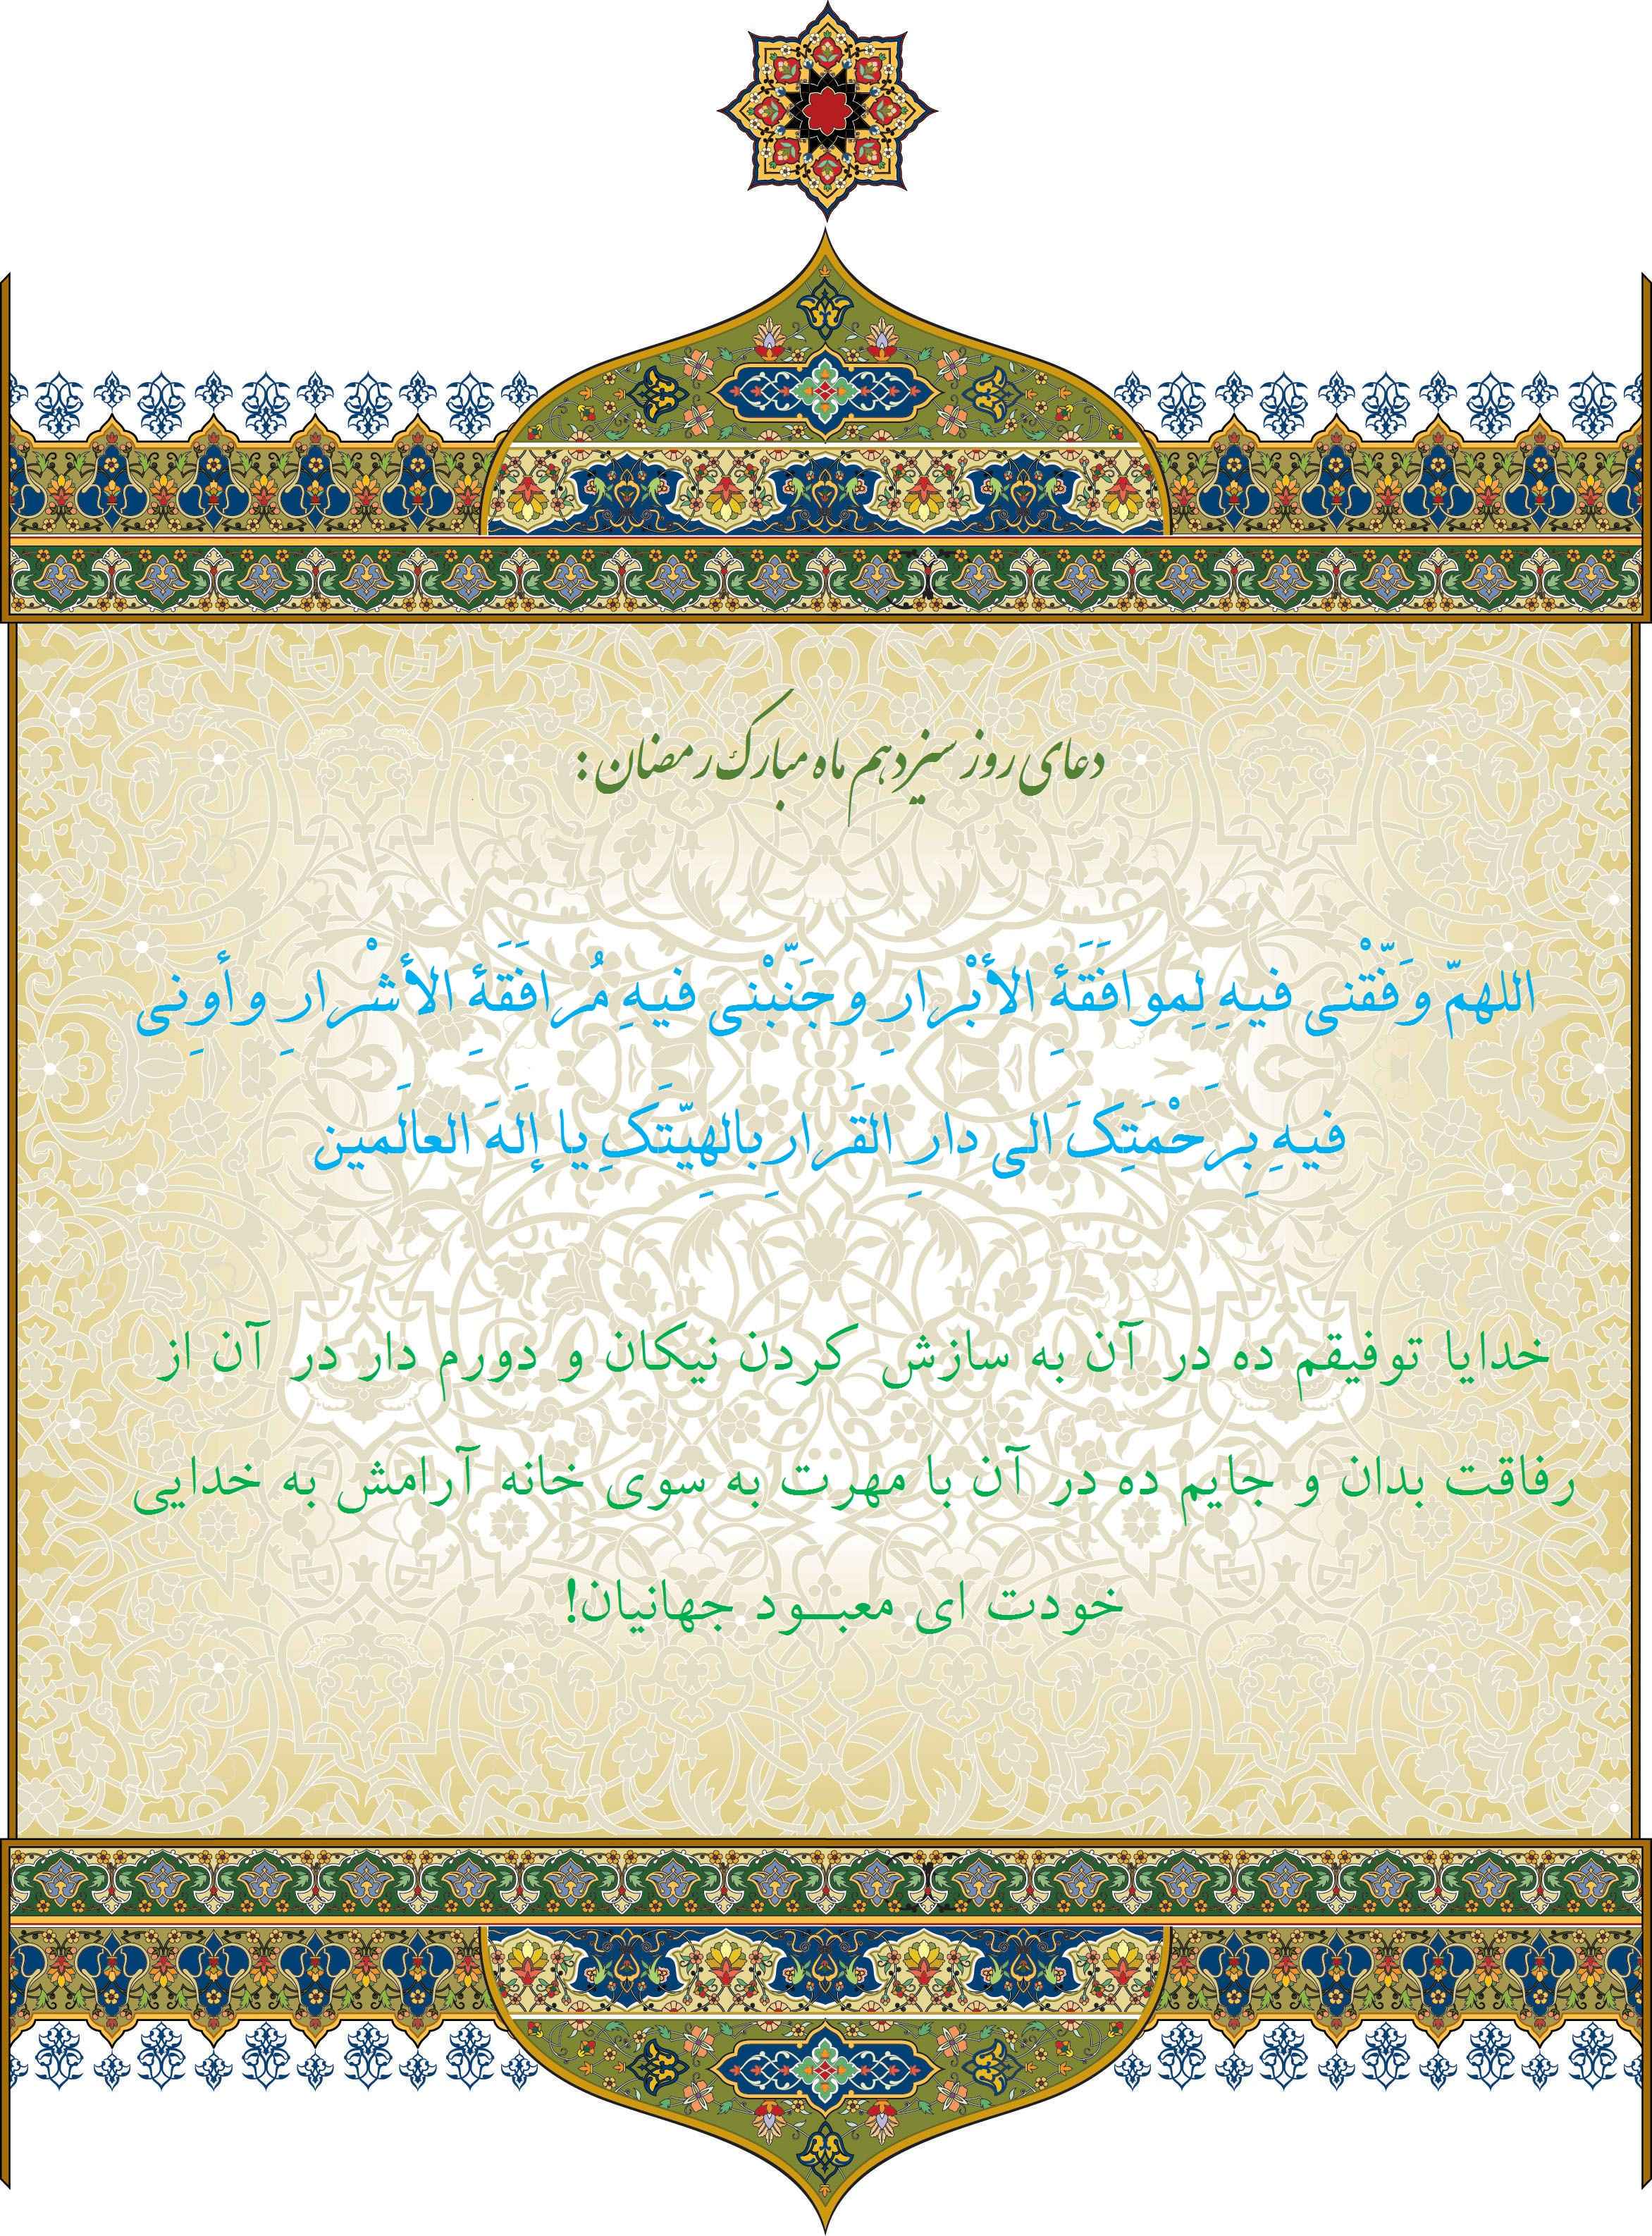 دعای روز سیزدهم ماه مبارک رمضان :
اللهمّ وَفّقْنی فیهِ لِموافَقَۀِ الأبْرارِ وجَنّبْنی فیهِ مُرافَقَۀِ الأشْرارِ وأوِنی
فیهِ بِرَحْمَتِکَ الی دارِ القَرارِ بِالهِیّتَکِ یا إلَهَ العالَمین
خدایا توفیقم ده در آن به سازش کردن نیکان و دورم دار در آن از
رفاقت بدان و جایم ده در آن با مهرت به سوی خانه آرامش به خدایی
خودت ای معبــود جهانیان!